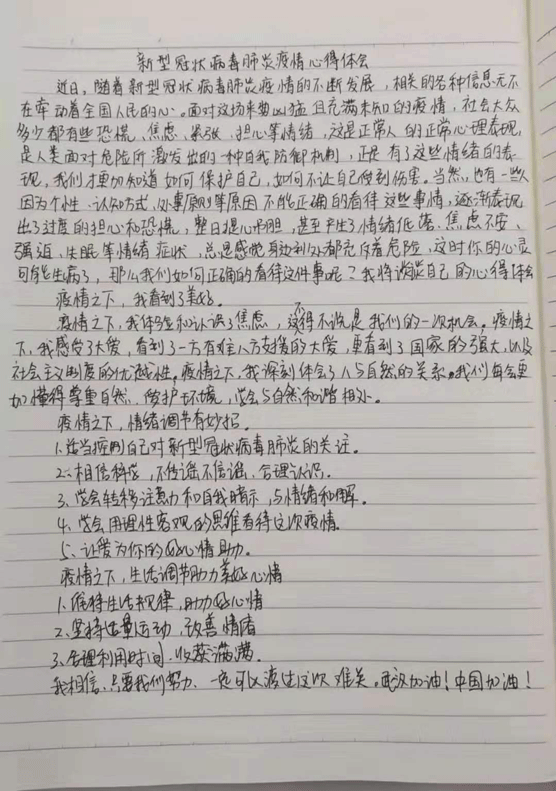 新型冠状病毒肺炎疫情心得体会
近日,随着新型冠状病毒肺炎疫情的不断发展,相关的各种信息无不
在牵动着全国人民的心。面对这场来势凶猛且充满未知的疫情,社会大众
多少都有些恐慌、焦虑、紧张、担心等情绪,这是正常人的正常心理表现,
是人类面对危险所激发出的一种自我防御机制,正是有了这些情绪的表
现,我们才更加知道如何保护自己,如何不让自己受到伤害。当然,也有一些人
因为个性、认知方式,处事原则等原因不能正确的看待这些事情,逐渐表现
出了过度的担心和恐慌,整日提心吊胆,甚至产生了情绪低落、焦虑不安、
强迫、失眠等情绪症状,总感觉身边到处都充斥着危险,这时你的心灵
可能生病了,那么我们如何正确的看待这件事呢?我将谈谈自己的心得体会
疫情之下,我看到了美好。
疫情之下,我体验和认识了焦虑,这不得不说是我们的一次机会。疫情之
下,我感受了大爱,看到了一方有难八方支援的大爱,更看到了国家的强大,以及
社会主义制度的优越性。疫情之下,我深刻体会了人与自然的关系。我们每会更
加懂得尊重自然,保护环境,学会与自然和谐相处。
疫情之下,情绪调节有妙招。
1.适当应用自己对新型冠状病毒肺炎的关注。
2、相信科学,不传谣不信谣、合理认识。
3、学会转移注意力和自我暗示,与情绪和解。
4、学会用理性客观的思维看待这次疫情。
5、让爱为你的好心情助力。
疫情之下,生活调节助力美好心情
1、维持生活规律,助力好心情
2、坚持适量运动,改善情绪
3、合理利用时间,收获满满.
我相信,只要我们努力、一定可以渡过这次难关。武汉加油!中国加油!